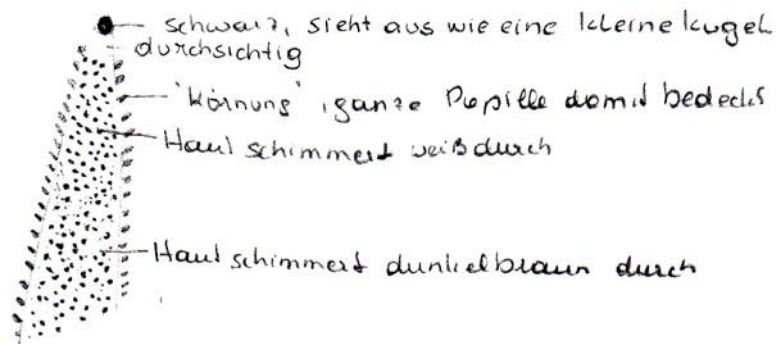 schwarz, sieht aus wie eine kleine Kugel
durchsichtig
'Körnung', ganze Papille damit bedeckt
Haut schimmert weiß durch
Haut schimmert dunkelbraun durch